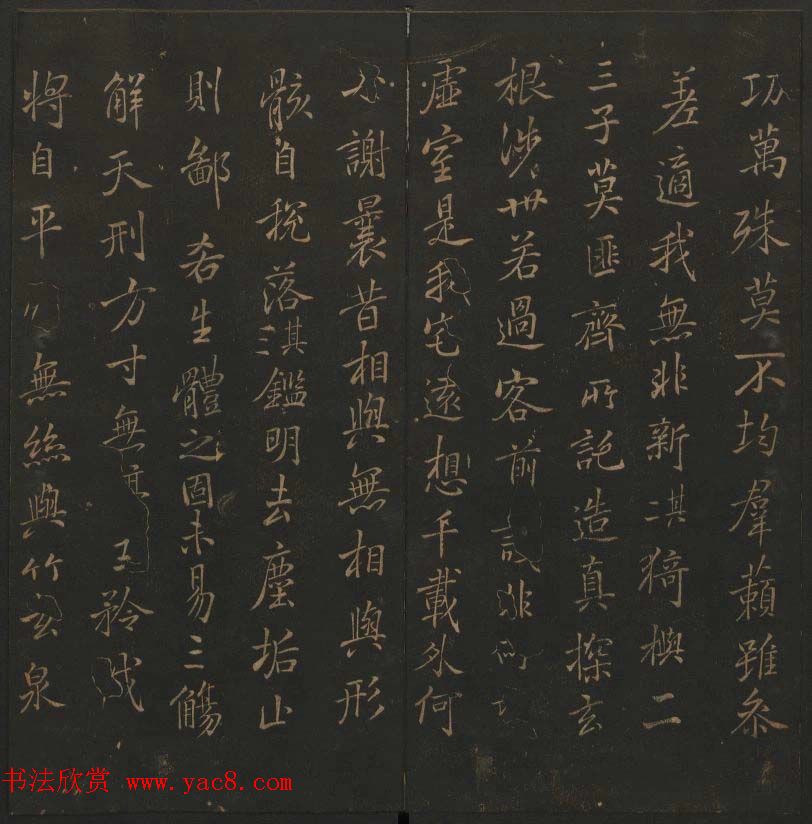 功萬殊莫不均羣藾雖参
差適我無非新淇猗與二
三子莫匪齊所託造真探玄
根涉世若過客前識非所
虛室是我宅遠想千載外何
必謝曩昔相與無相與形
骸自税落淇鑑明去塵垢止
則鄙𠫤生體之固未易三觴
解天刑方寸無 王矜伐
將自平 無絲與竹玄泉
书法欣赏 www.yac8.com